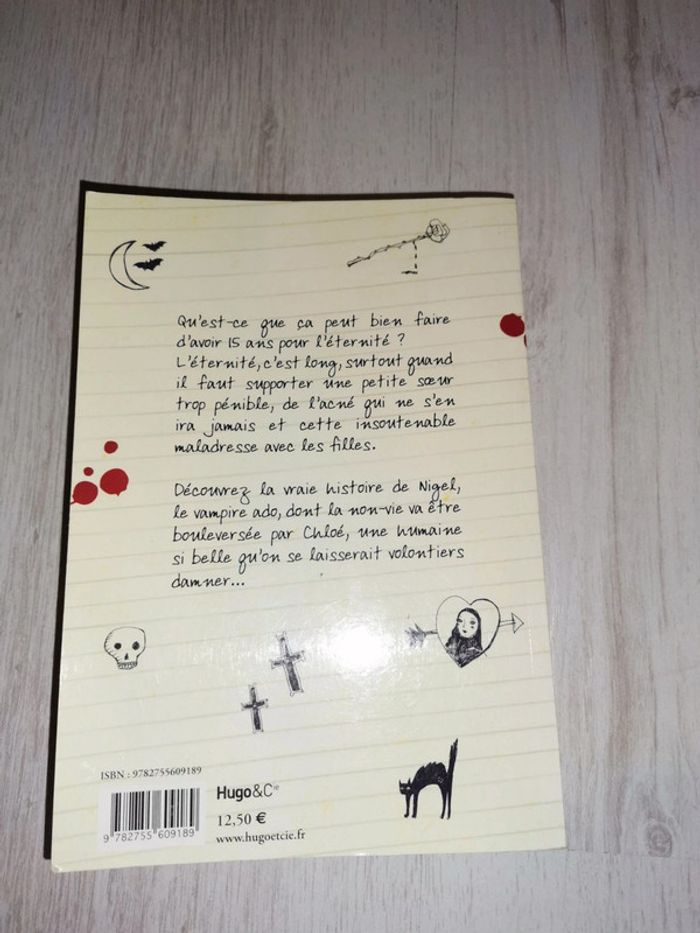 Qu'est-ce que ça peut bien faire
d'avoir 15 ans pour l'éternité ?
L'éternité, c'est long, surtout quand
il faut supporter une petite sœur
trop pénible, de l'acné qui ne s'en
ira jamais et cette insoutenable
maladresse avec les filles.
Découvrez la vraie histoire de Nigel,
le vampire ado, dont la non-vie va être
bouleversée par Chloé, une humaine
si belle qu'on se laisserait volontiers
damner...
ISBN : 9782755609189
Hugo&Cie
12,50 €
www.hugoetcie.fr
9 782755 609189